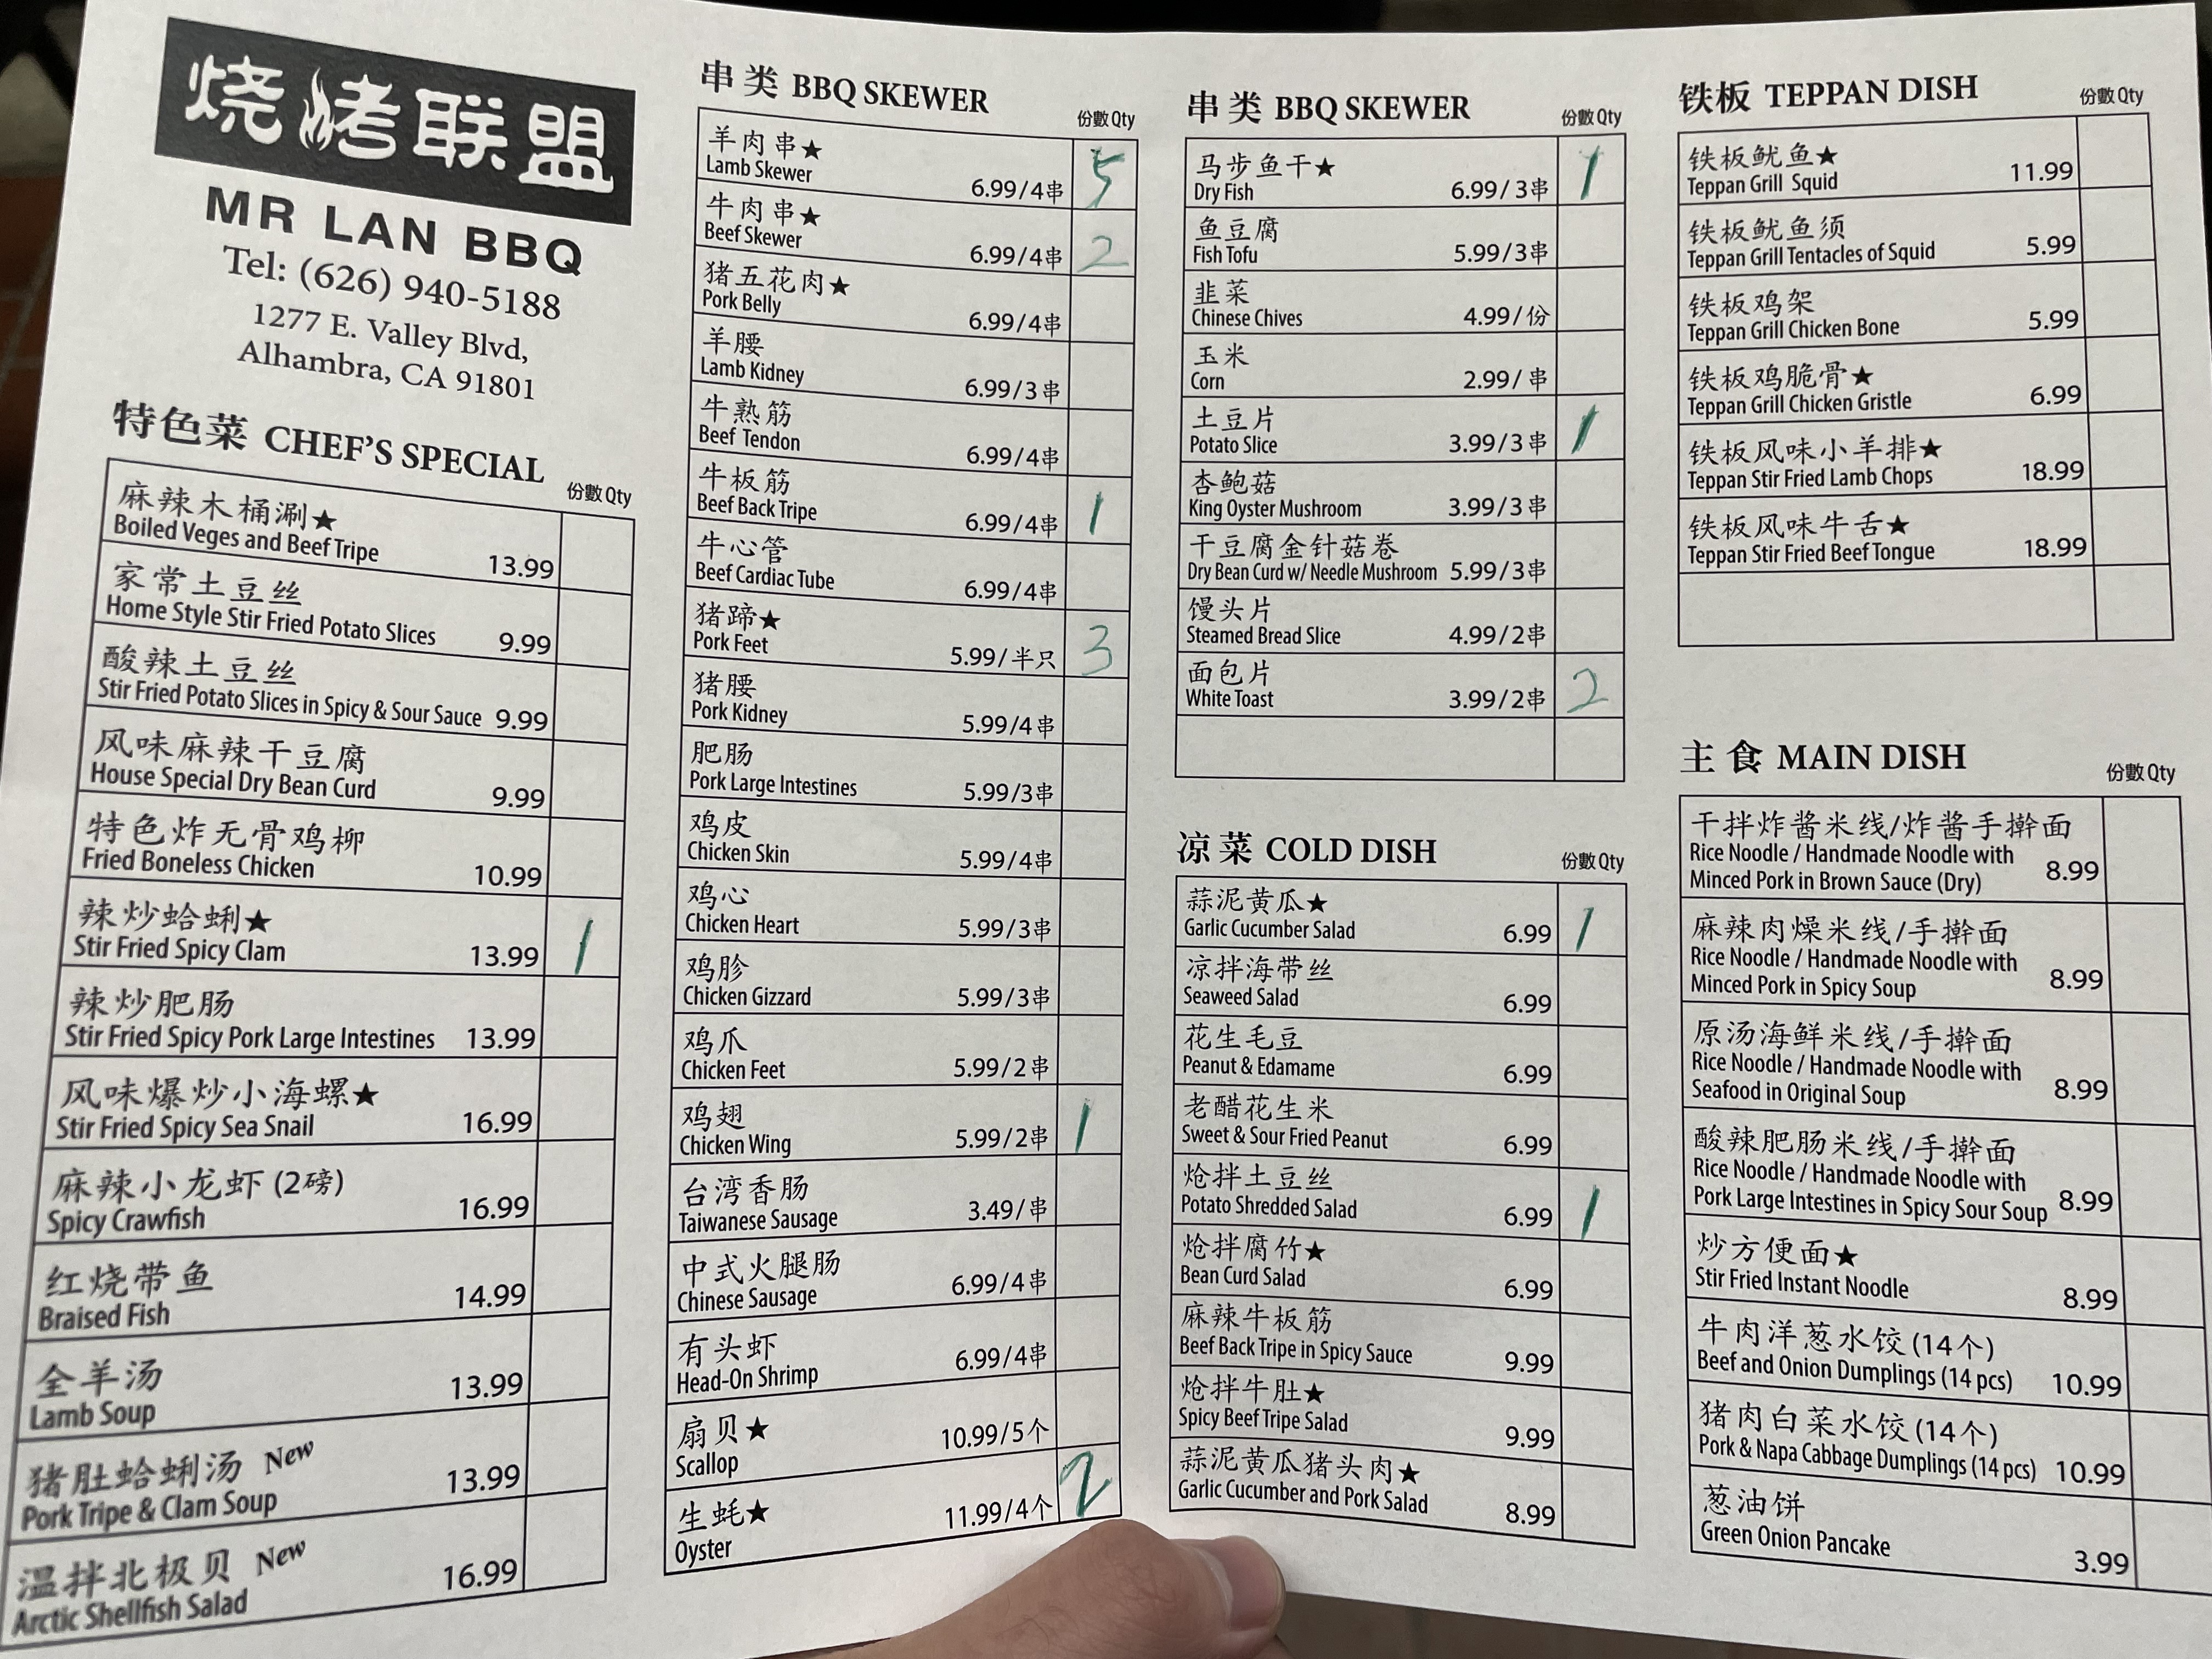 烧烤联盟
MR LAN BBQ
Tel: (626) 940-5188
1277 E. Valley Blvd,
Alhambra, CA 91801
特色菜 CHEF'S SPECIAL 份數 Qty
麻辣木桶涮★
Boiled Veges and Beef Tripe 13.99
家常土豆丝
Home Style Stir Fried Potato Slices 9.99
酸辣土豆丝
Stir Fried Potato Slices in Spicy & Sour Sauce 9.99
风味麻辣干豆腐
House Special Dry Bean Curd 9.99
特色炸无骨鸡柳
Fried Boneless Chicken 10.99
辣炒蛤蜊★
Stir Fried Spicy Clam 13.99 1
辣炒肥肠
Stir Fried Spicy Pork Large Intestines 13.99
风味爆炒小海螺★
Stir Fried Spicy Sea Snail 16.99
麻辣小龙虾 (2磅)
Spicy Crawfish 16.99
红烧带鱼
Braised Fish 14.99
全羊汤
Lamb Soup 13.99
猪肚蛤蜊汤 New
Pork Tripe & Clam Soup 13.99
温拌北极贝 New
Arctic Shellfish Salad 16.99
串类 BBQ SKEWER 份數 Qty
羊肉串★
Lamb Skewer 6.99/4串 5
牛肉串★
Beef Skewer 6.99/4串 2
猪五花肉★
Pork Belly 6.99/4串
羊腰
Lamb Kidney 6.99/3串
牛熟筋
Beef Tendon 6.99/4串
牛板筋
Beef Back Tripe 6.99/4串 1
牛心管
Beef Cardiac Tube 6.99/4串
猪蹄★
Pork Feet 5.99/半只 3
猪腰
Pork Kidney 5.99/4串
肥肠
Pork Large Intestines 5.99/3串
鸡皮
Chicken Skin 5.99/4串
鸡心
Chicken Heart 5.99/3串
鸡胗
Chicken Gizzard 5.99/3串
鸡爪
Chicken Feet 5.99/2串
鸡翅
Chicken Wing 5.99/2串 1
台湾香肠
Taiwanese Sausage 3.49/串
中式火腿肠
Chinese Sausage 6.99/4串
有头虾
Head-On Shrimp 6.99/4串
扇贝★
Scallop 10.99/5个
生蚝★
Oyster 11.99/4个 2
串类 BBQ SKEWER 份數 Qty
马步鱼干★
Dry Fish 6.99/3串 1
鱼豆腐
Fish Tofu 5.99/3串
韭菜
Chinese Chives 4.99/份
玉米
Corn 2.99/串
土豆片
Potato Slice 3.99/3串 1
杏鲍菇
King Oyster Mushroom 3.99/3串
干豆腐金针菇卷
Dry Bean Curd w/ Needle Mushroom 5.99/3串
馒头片
Steamed Bread Slice 4.99/2串
面包片
White Toast 3.99/2串 2
凉菜 COLD DISH 份數 Qty
蒜泥黄瓜★
Garlic Cucumber Salad 6.99 1
凉拌海带丝
Seaweed Salad 6.99
花生毛豆
Peanut & Edamame 6.99
老醋花生米
Sweet & Sour Fried Peanut 6.99
炝拌土豆丝
Potato Shredded Salad 6.99 1
炝拌腐竹★
Bean Curd Salad 6.99
麻辣牛板筋
Beef Back Tripe in Spicy Sauce 9.99
炝拌牛肚★
Spicy Beef Tripe Salad 9.99
蒜泥黄瓜猪头肉★
Garlic Cucumber and Pork Salad 8.99
铁板 TEPPAN DISH 份數 Qty
铁板鱿鱼★
Teppan Grill Squid 11.99
铁板鱿鱼须
Teppan Grill Tentacles of Squid 5.99
铁板鸡架
Teppan Grill Chicken Bone 5.99
铁板鸡脆骨★
Teppan Grill Chicken Gristle 6.99
铁板风味小羊排★
Teppan Stir Fried Lamb Chops 18.99
铁板风味牛舌★
Teppan Stir Fried Beef Tongue 18.99
主食 MAIN DISH 份數 Qty
干拌炸酱米线/炸酱手擀面
Rice Noodle / Handmade Noodle with
Minced Pork in Brown Sauce (Dry) 8.99
麻辣肉燥米线/手擀面
Rice Noodle / Handmade Noodle with
Minced Pork in Spicy Soup 8.99
原汤海鲜米线/手擀面
Rice Noodle / Handmade Noodle with
Seafood in Original Soup 8.99
酸辣肥肠米线/手擀面
Rice Noodle / Handmade Noodle with
Pork Large Intestines in Spicy Sour Soup 8.99
炒方便面★
Stir Fried Instant Noodle 8.99
牛肉洋葱水饺 (14个)
Beef and Onion Dumplings (14 pcs) 10.99
猪肉白菜水饺 (14个)
Pork & Napa Cabbage Dumplings (14 pcs) 10.99
葱油饼
Green Onion Pancake 3.99